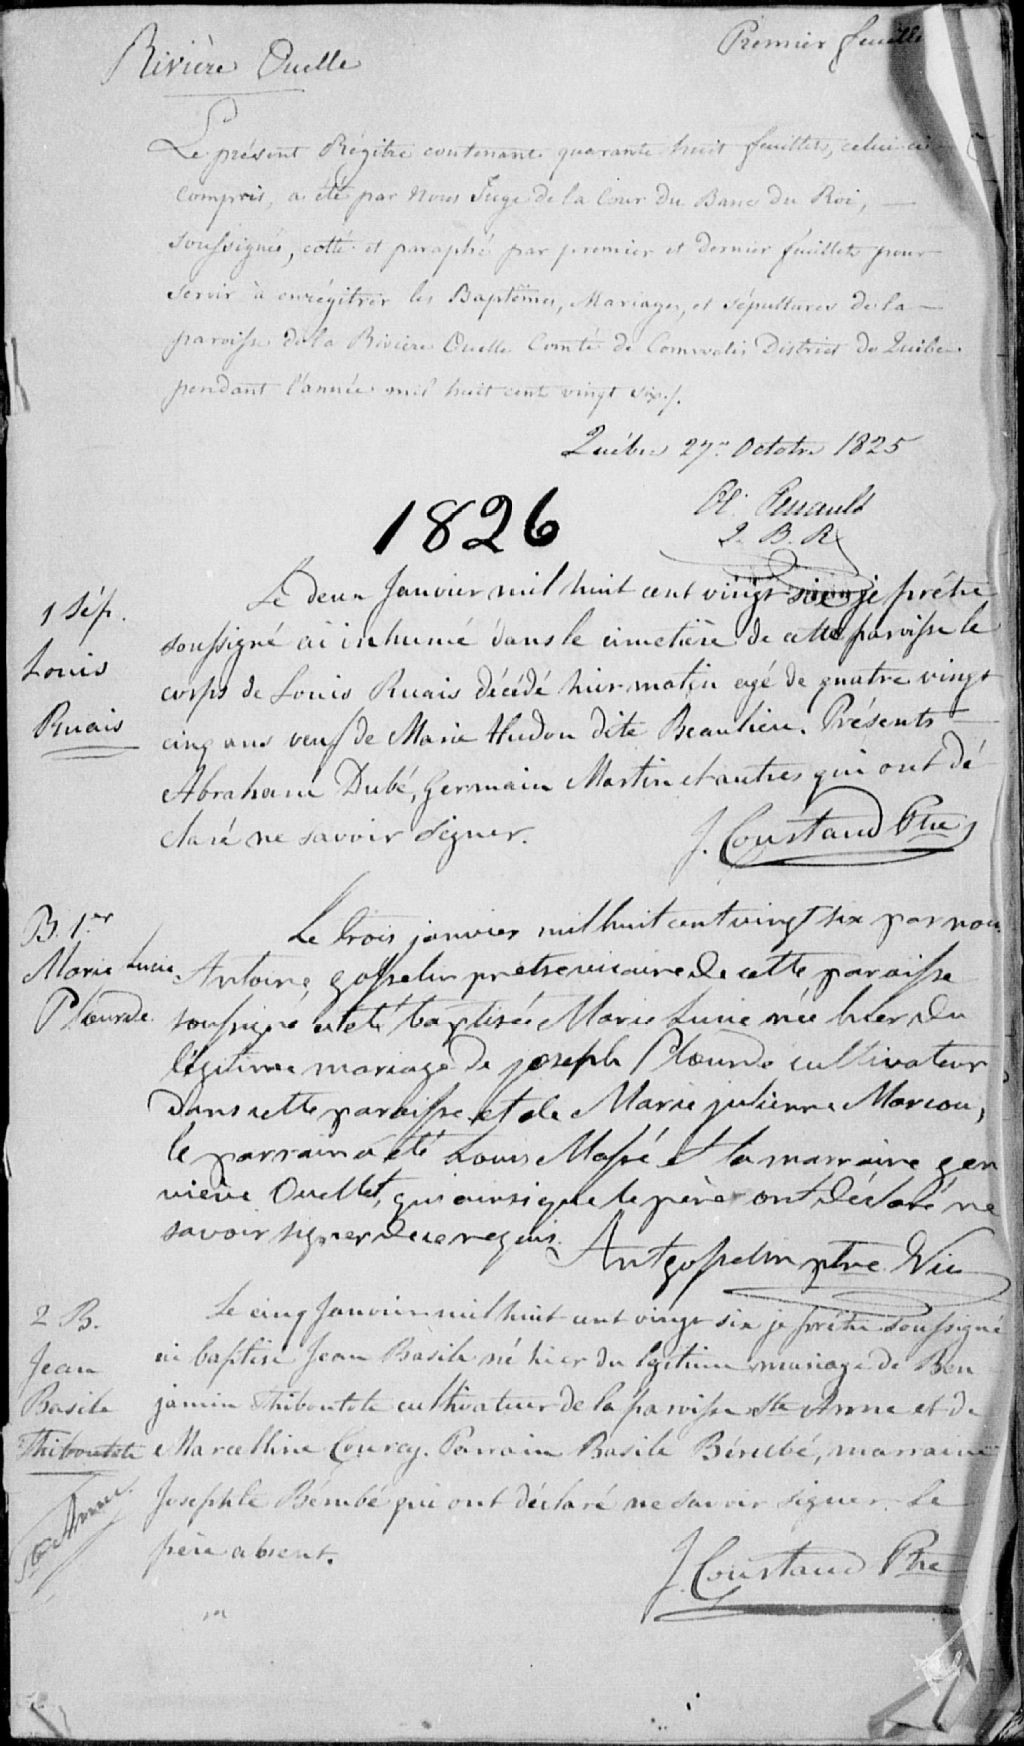 Rivière Ouelle
Premier feuillet
Le présent Régître contenant quarante huit feuillets, celui-ci
compris, a été par Nous Juge de la Cour du Banc du Roi, —
soussigné, cotté et paraphé par premier et dernier feuillets pour
servir à enrégitrer les Baptêmes, Mariages, et sépultures de la —
paroisse de la Rivière Ouelle Comté de Cornwalis District de Québec
pendant l'année mil huit cent vingt six./.
Québec 27 Octobre 1825
Ol. Perrault
J. B. R
1826
1 Sép.
Louis
Ruais
Le deux Janvier mil huit cent vingt six je prêtre
soussigné ai inhumé dans le cimetière de cette paroisse le
corps de Louis Ruais décédé hier matin agé de quatre vingt
cinq ans veuf de Marie Hudon dite Beaulieu. Présents —
Abraham Dubé, Germain Martin et autres qui ont dé
claré ne savoir signer.
J. Courtaud Ptre
B. 1.er
Marie Lucie
Plourde
Le trois janvier mil huit cent vingt six par nous
Antoine gosselin prêtre vicaire de cette paroisse
soussigné a été baptisée Marie Lucie née hier du
légitime mariage de joseph Plourde cultivateur
dans cette paroisse et de Marie julienne Moreau,
le parrain a été Louis Massé et la marraine gen
viève Ouellet, qui ainsi que le père ont déclaré ne
savoir signer de ce requis.
Ant gosselin ptre Vic
2 B.
Jean
Basile
Thiboutote
Ste Anne
Le cinq Janvier mil huit cent vingt six je prêtre soussigné
ai baptisé Jean Basile né hier du légitime mariage de Ben
jamin Thiboutote cultivateur de la paroisse Ste Anne et de
Marcelline Courcy. Parrain Basile Bérubé, marraine
Josephte Bérubé qui ont déclaré ne savoir signer. Le
père absent.
J. Courtaud Ptre